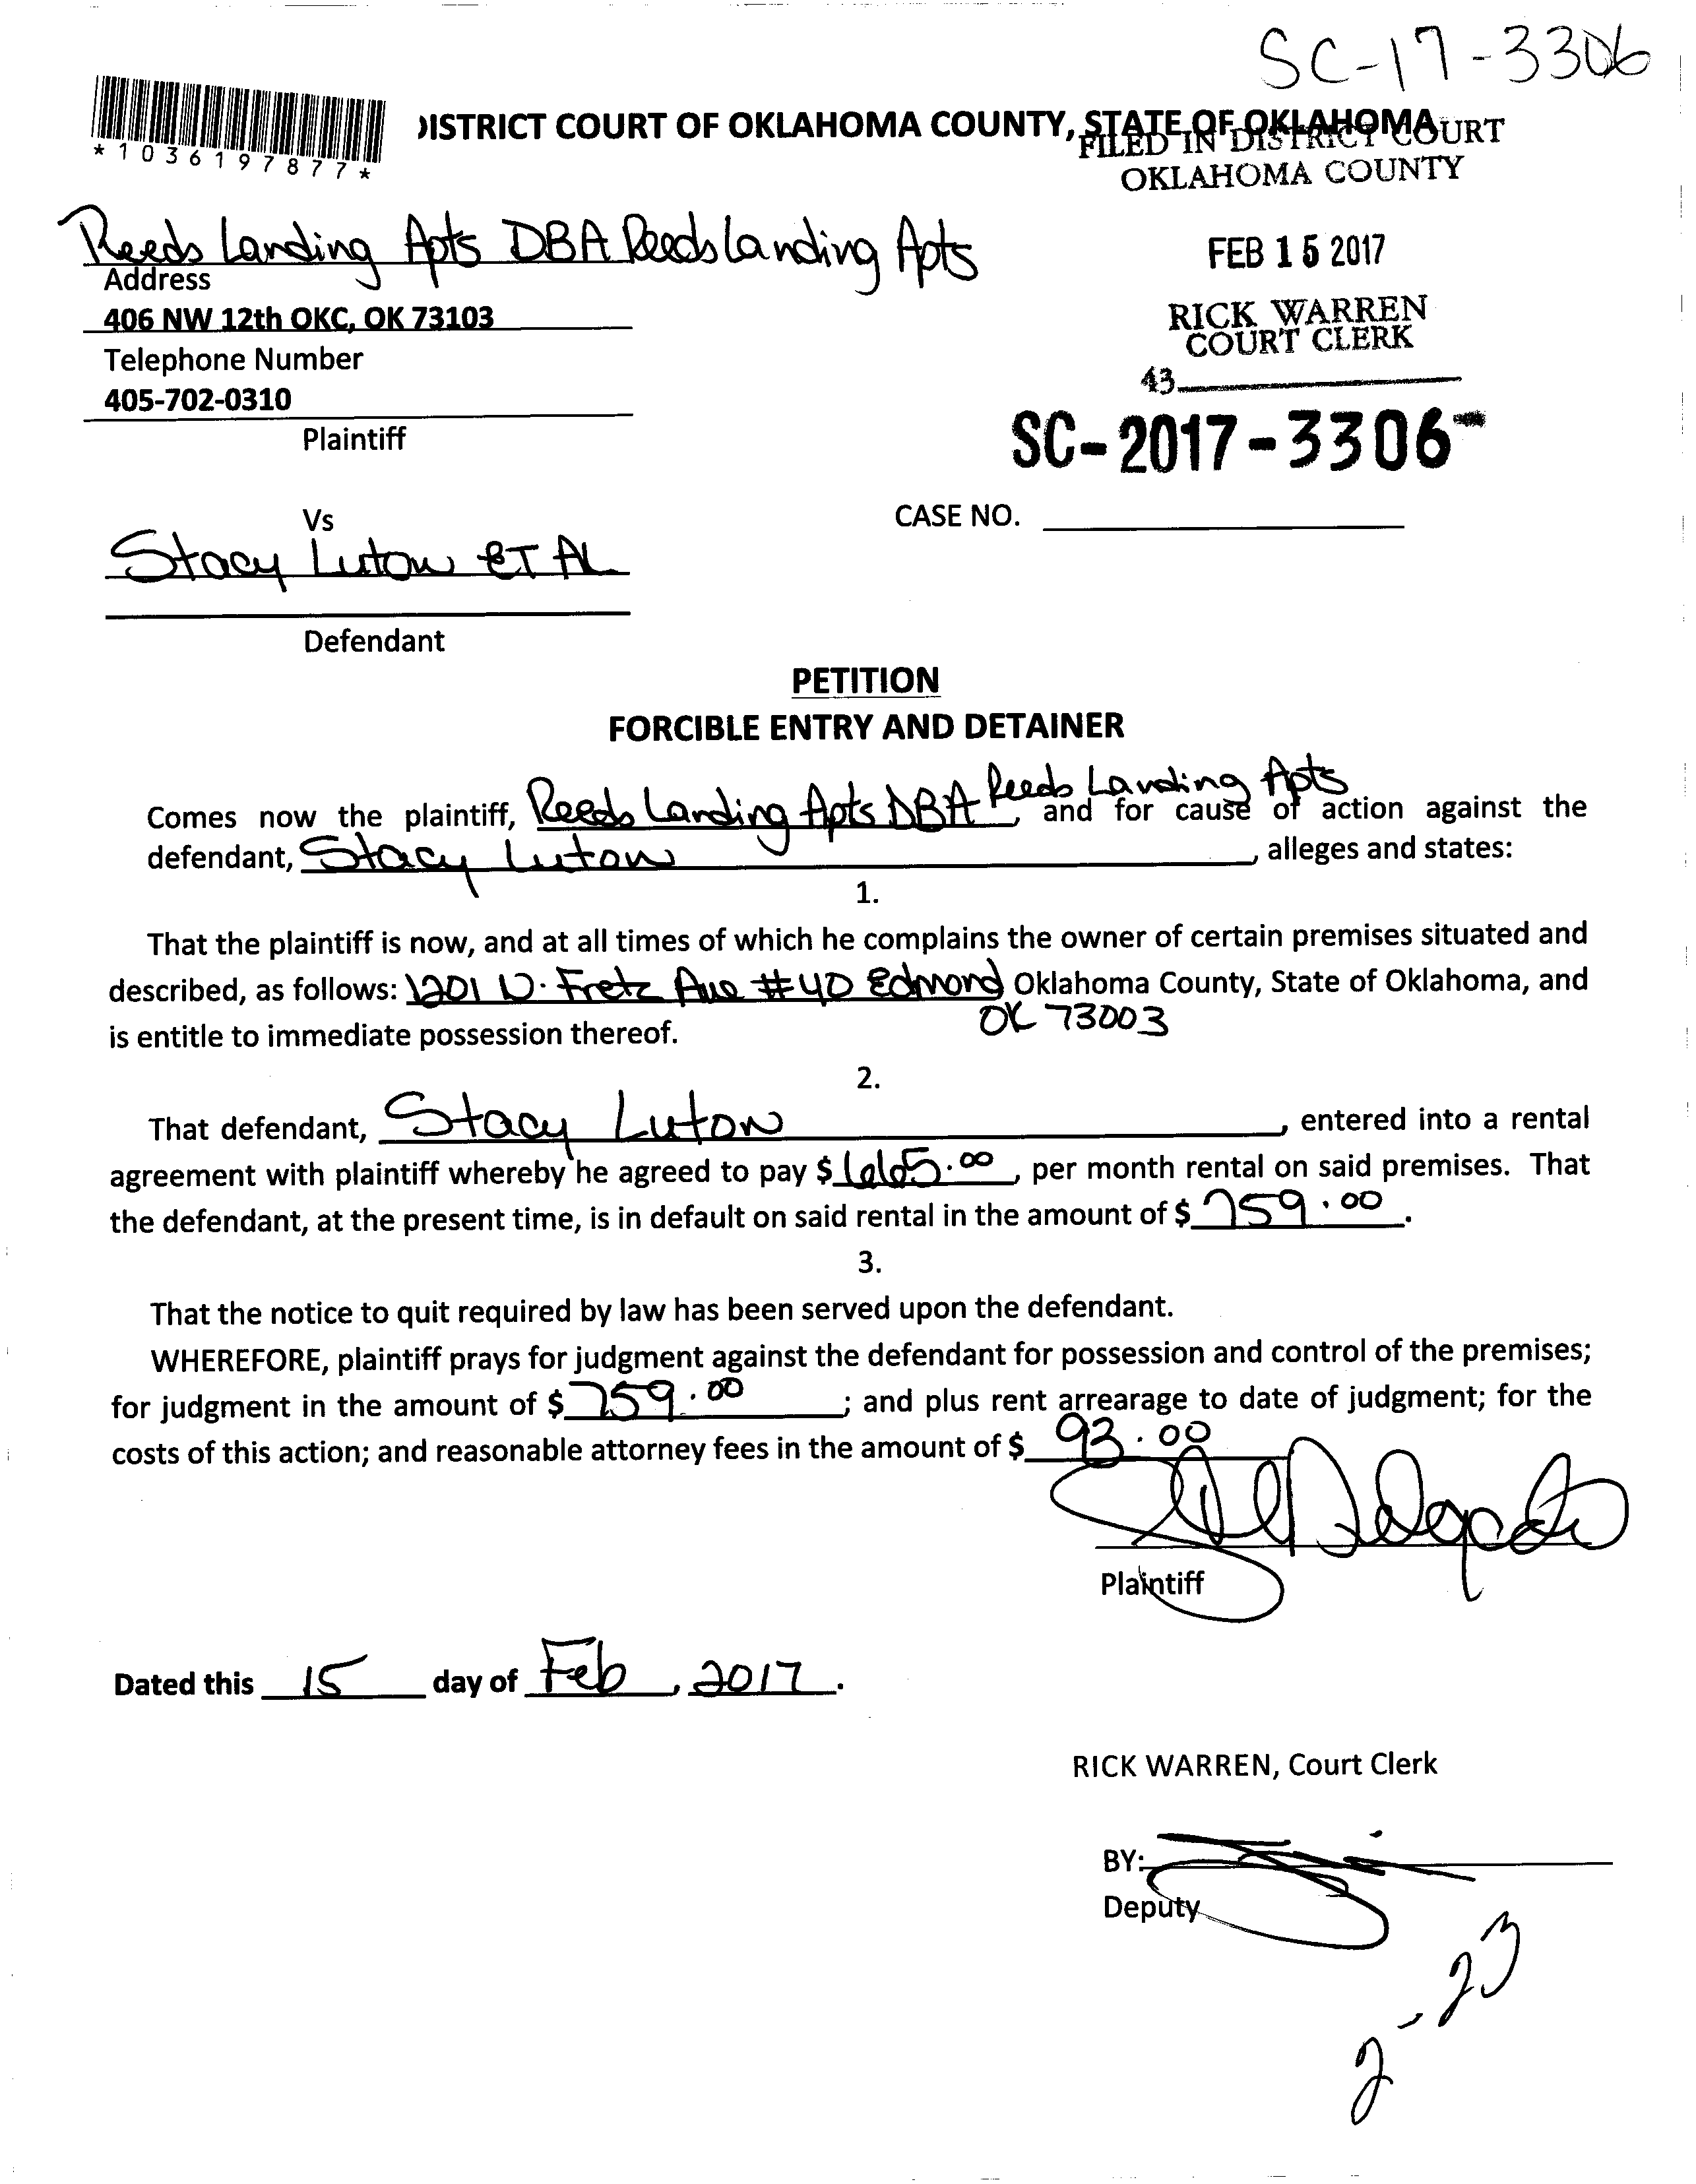 SC-17-3306
*1036197877*
DISTRICT COURT OF OKLAHOMA COUNTY, STATE OF OKLAHOMA
FILED IN DISTRICT COURT
OKLAHOMA COUNTY
FEB 15 2017
RICK WARREN
COURT CLERK
43
SC-2017-3306-
Reeds Landing Apts DBA Reeds Landing Apts
Address
406 NW 12th OKC, OK 73103
Telephone Number
405-702-0310
Plaintiff
Vs
CASE NO.
Stacy Luton ET AL
Defendant
PETITION
FORCIBLE ENTRY AND DETAINER
Comes now the plaintiff, Reeds Landing Apts DBA Reeds Landing Apts, and for cause of action against the
defendant, Stacy Luton, alleges and states:
1.
That the plaintiff is now, and at all times of which he complains the owner of certain premises situated and
described, as follows: 1201 N. Fretz Ave #40 Edmond Oklahoma County, State of Oklahoma, and
OK 73003
is entitle to immediate possession thereof.
2.
That defendant, Stacy Luton, entered into a rental
agreement with plaintiff whereby he agreed to pay $ 665.00, per month rental on said premises. That
the defendant, at the present time, is in default on said rental in the amount of $ 759.00.
3.
That the notice to quit required by law has been served upon the defendant.
WHEREFORE, plaintiff prays for judgment against the defendant for possession and control of the premises;
for judgment in the amount of $ 759.00; and plus rent arrearage to date of judgment; for the
costs of this action; and reasonable attorney fees in the amount of $ 93.00
Delgado
Plaintiff
Dated this 15 day of Feb, 2017.
RICK WARREN, Court Clerk
BY:
Deputy
2-23